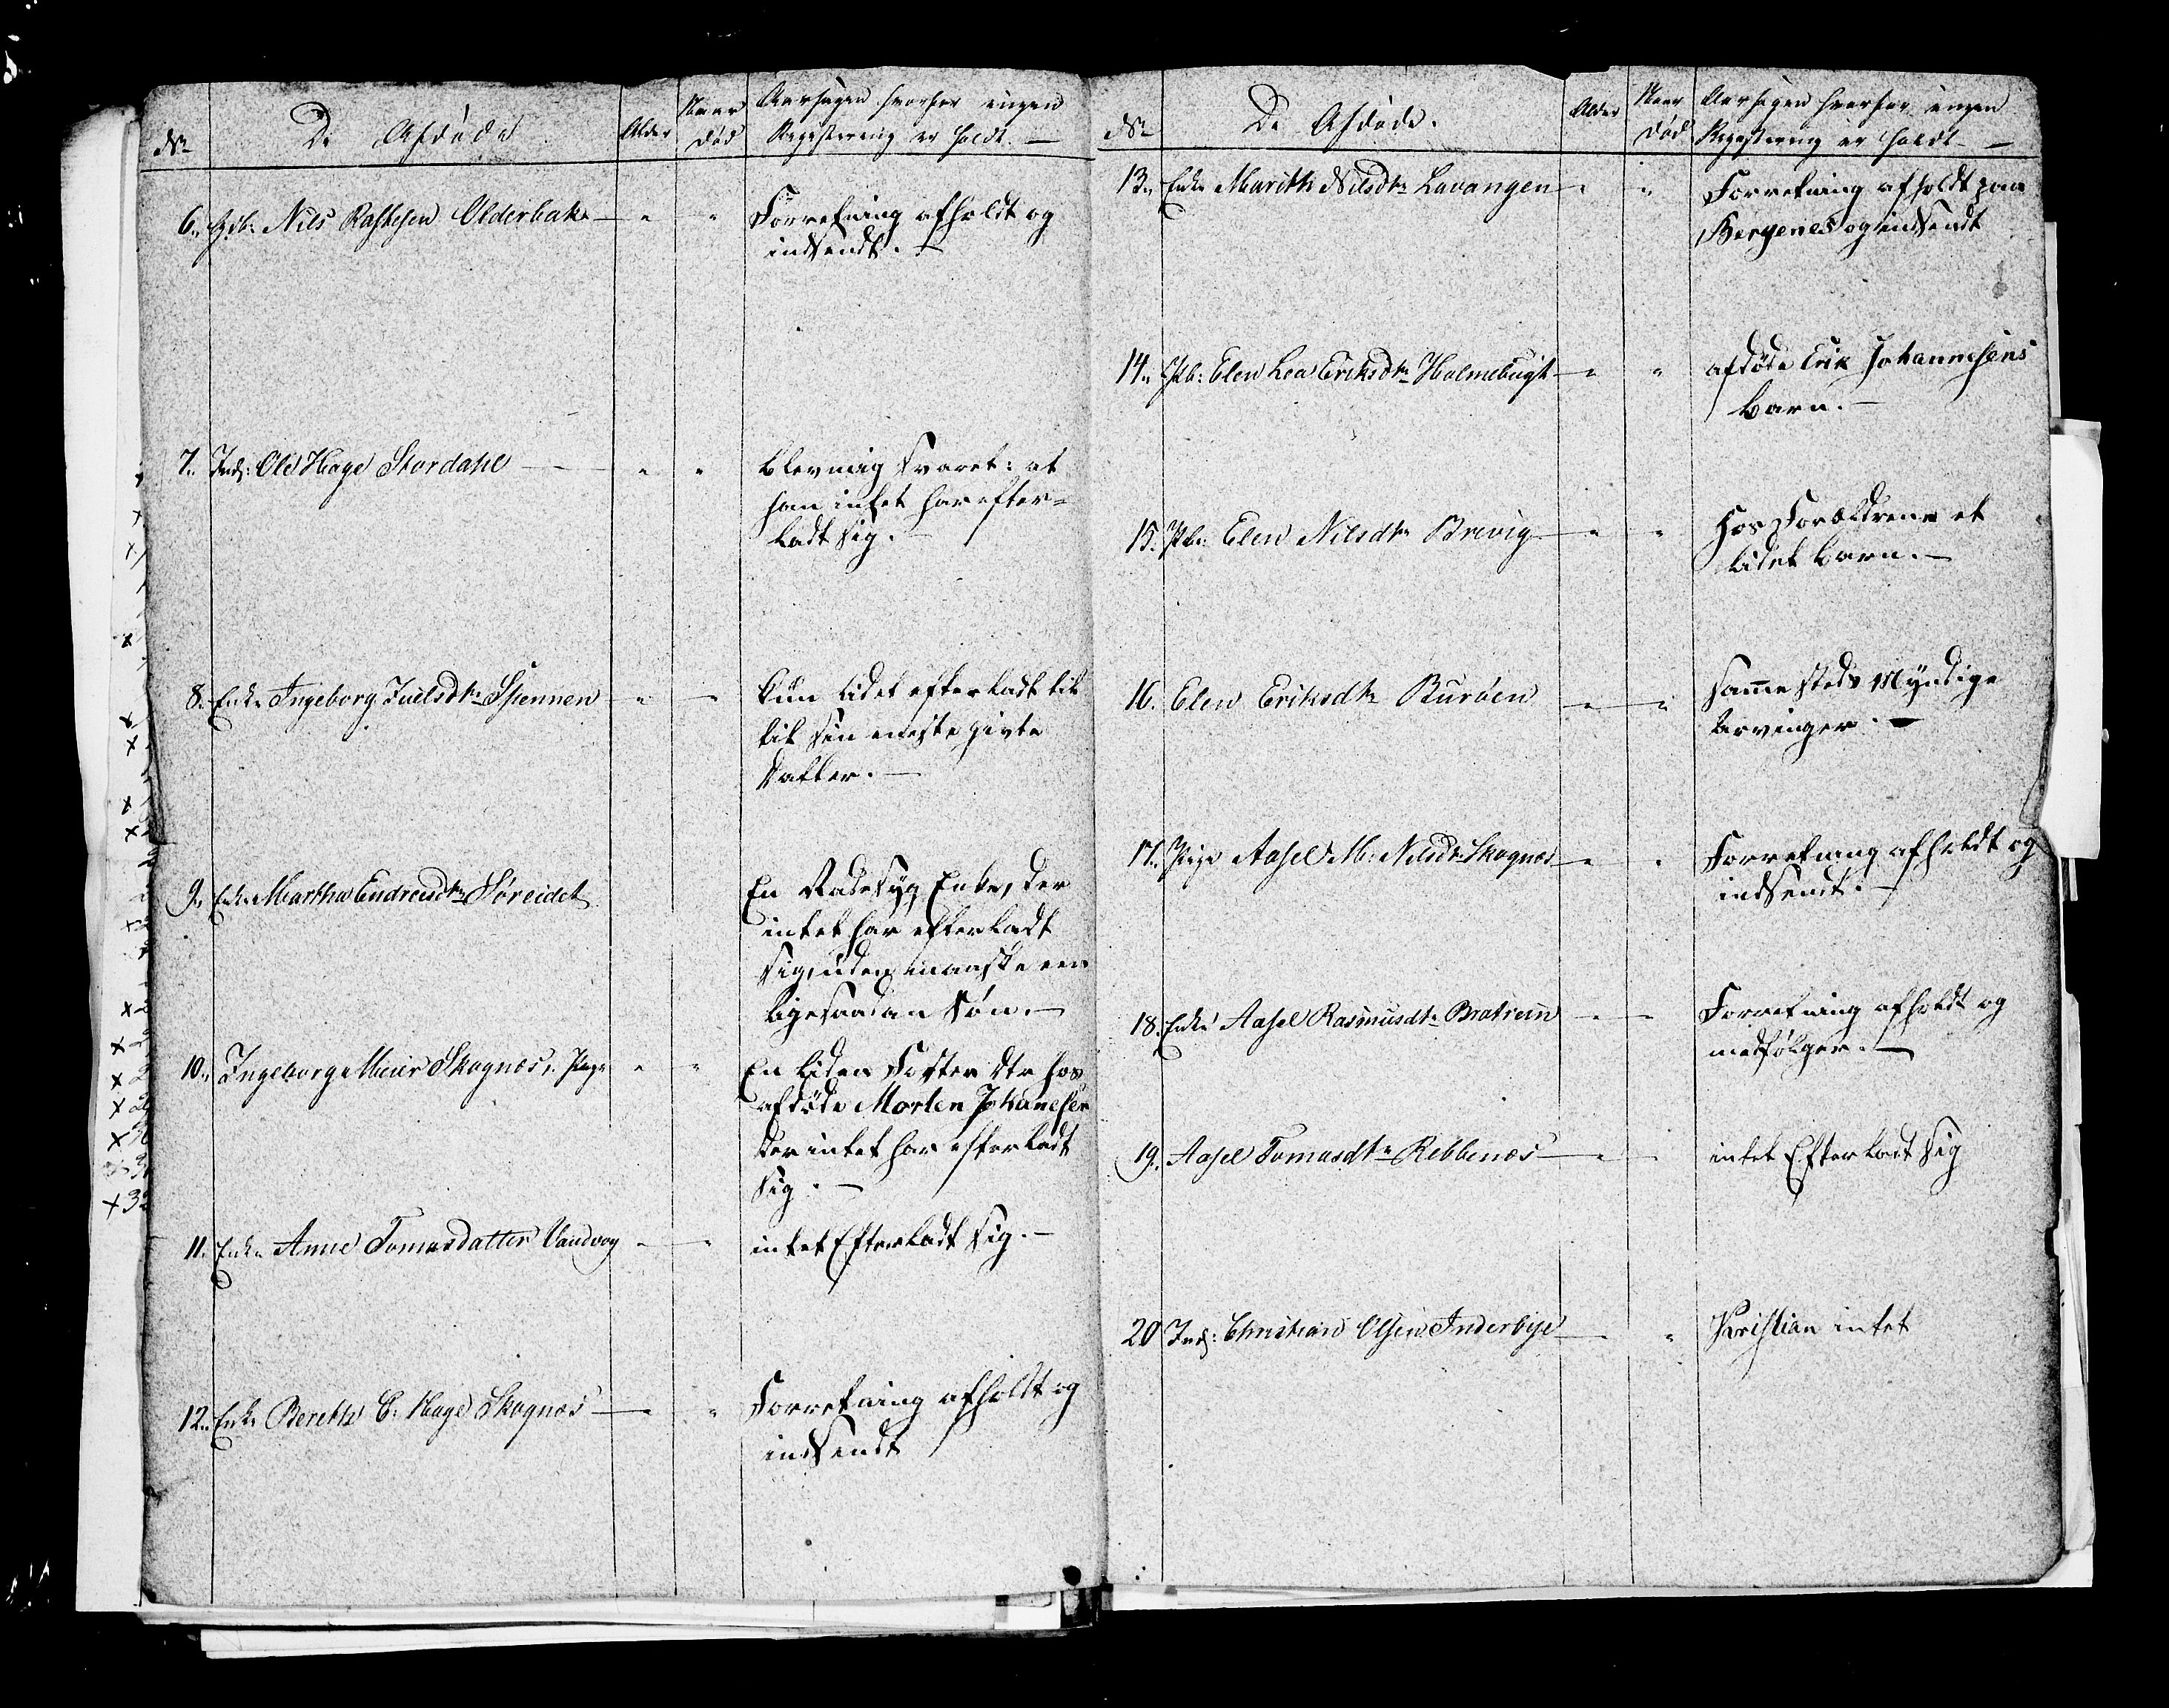 No De Afdøde Alder Naar død Aarsagen hvorfor ingen
Registrering er holdt. —
6. Gdb: Nils Rasksen Olderbak — " " Forretning afholdt og
indsendt. —
7. Inds: Ole Hage Stordahl — " " blev mig svaret: at
han intet har efter=
ladt sig. —
8. Enke Ingeborg Juelsdtr Spennen — " — kun lidet efterladt til
til sin eneste givte
datter. —
9. Enke Martha Endresdtr Søreidet En Radesyg Enke, der
intet har efterladt
sig, uden maaske een
ligesaadan Søn. —
10. Ingeborg Meier Skognæs, Pige " " En liden Foster dtr hos
afdøde Morten Johanesen
der intet har efterladt
sig. —
11. Enke Anne Tomasdatter Vandvog — " intet Efterladt sig. —
12. Enke Berethe C. Hage Skognæs — " Forretning afholdt og
indsendt
No De Afdøde. Alder Naar død Aarsagen hvorfor ingen
Registrering er holdt —
13. Enke Marith Nilsdtr Lavangen — " " Forretning afholdt paa
Bergenes og indsendt
14. Pb: Elen Lea Eriksdtr Holmebugt — " " afdøde Erik Johannesens
barn. —
15. Pb: Elen Nilsdtr Brevig — " " hos Forældrene et
lidet barn. —
16. Elen Eriksdtr Burøen — " sammesteds Myndige
Arvinger. —
17. Pige Aasel M: Nilsdtr Skognæs — " " Forretning afholdt og
indsendt. —
18. Enke Aasel Rasmusdtr Bratrein — — Forretning afholdt og
medfølger. —
19. Aasel Tomasdtr Rebbenæs — " — intet Efterladt sig
20 Inds: Christian Olsen Inderbye — " Kristian intet